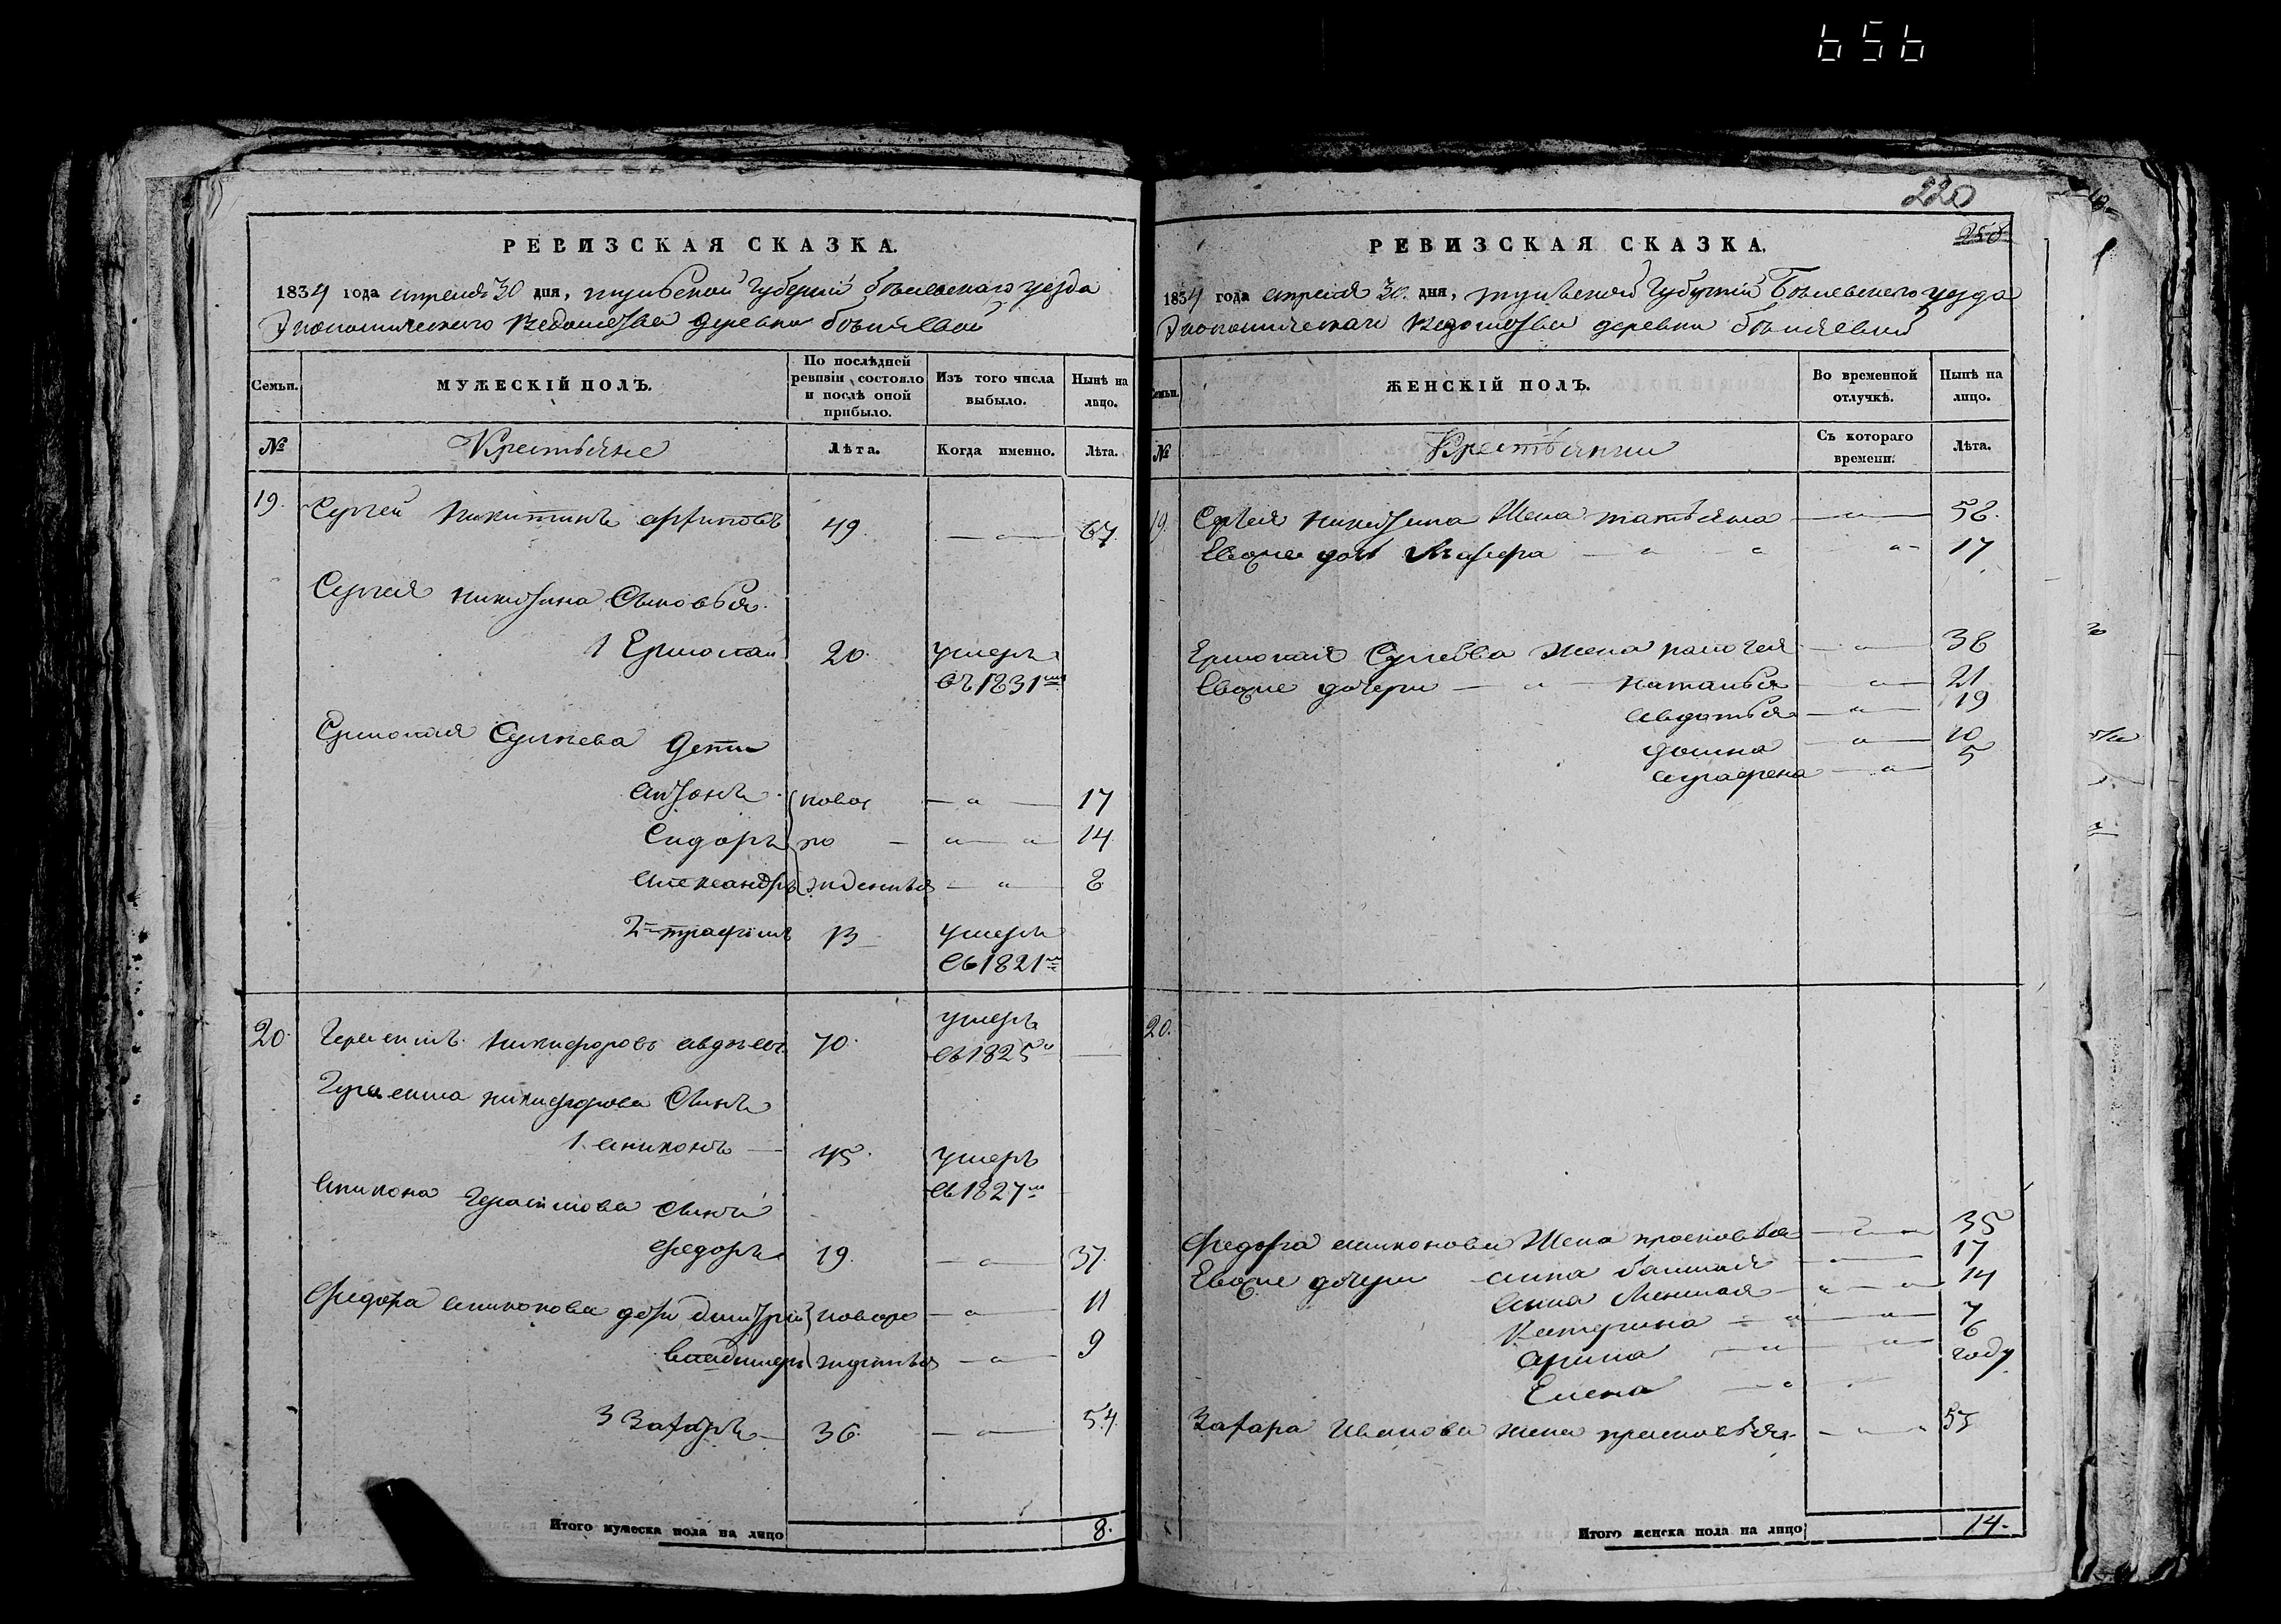 656
220
РЕВИЗСКАЯ СКАЗКА.
1834 года апреля 30 дня, тульской губернии белевского уезда
Экономического ведомства деревни
Семьи.
МУЖЕСКІЙ ПОЛЪ.
По послѣдней ревизіи состояло и послѣ оной прибыло.
Изъ того числа выбыло.
Нынѣ на лицо.
№
Крестьяне
Лѣта.
Когда именно.
Лѣта.
19. Сергей Никитинъ 49. 67
Сергея Никитина Сыновья
1 Ермолай 20. умеръ
въ 1831
Ермолая Сергеева дети
антонъ новоро 17
Сидоръ 14
александръ жденныя 8
2 трафимъ 13 умеръ
въ 1821
20. Герасимъ Никифоровъ 70. умеръ
въ 1825
Герасима никифорова сынъ
1. аниконъ 45. умеръ
въ 1827
аникона Герасимова сынъ
федоръ 19. 37.
Федора аниконова дети дмитрий новоро 11
владимеръ жденныя 9
3 Захаръ 36. 54.
Итого мужеска пола на лицо 8.
РЕВИЗСКАЯ СКАЗКА.
1834 года апреля 30. дня, тульской губернии Белевского уезда
Экономическаго ведомства деревни
Семьи.
ЖЕНСКІЙ ПОЛЪ.
Во временной отлучкѣ.
Нынѣ на лицо.
№
Крестьянки
Съ котораго времени.
Лѣта.
19. Сергея никитина Жена татьяна 58.
Евоже дочь 17
Ермолая Сергеева жена 38
Евоже дочери наталья 21
авдотья 19
домна 10
аграфена 5
20.
Федора аниконова Жена прасковья 35
Евоже дочери анна большая 17
анна Меншая 14
Катерина 7
арина 6
Елена году
Захара Иванова жена прасковья 53
Итого женска пола на лицо 14.